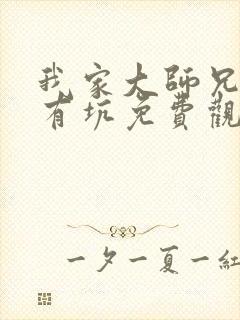 我家大師兄
有坑免費觀
一夕一夏一紅